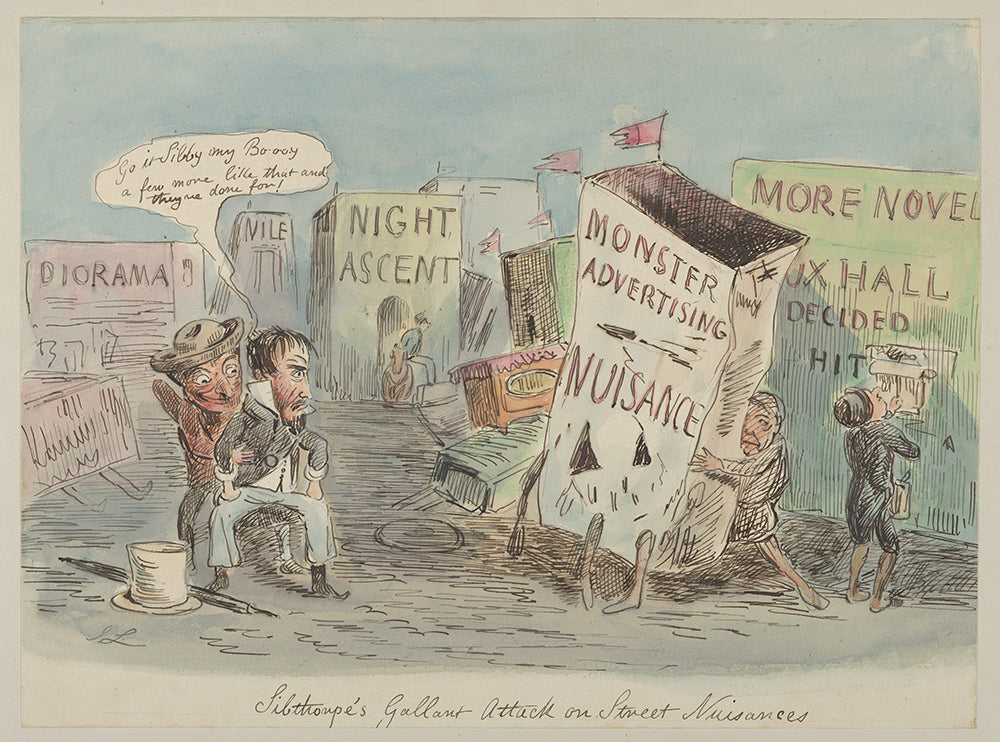 Go it Sibby my Bo-ooy
a few more like that and
they're done for!
DIORAMA
NILE
NIGHT
ASCENT
MONSTER
ADVERTISING
NUISANCE
MORE NOVEL
UXHALL
DECIDED
HIT
Sibthorpe's Gallant Attack on Street Nuisances